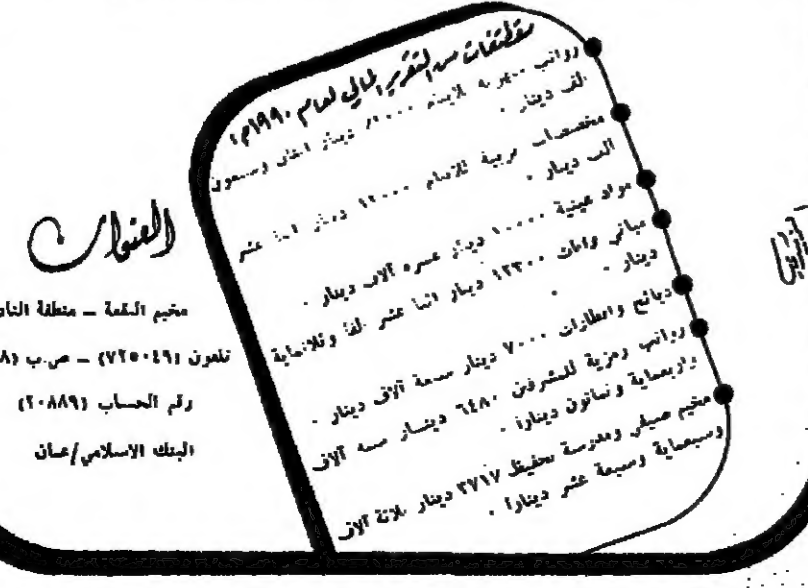 مقتطفات من التقرير المالي لعام ١٩٩٠م
رواتب للايتام دينار وسبعون
الف دينار .
مخصصات للأيتام ١٢٠٠٠ دينار عشر
الف دينار .
مواد عينية ١٠٠٠٠ دينار عشرة آلاف دينار .
مباني واثاث ١٢٣٠٠ دينار اثنا عشر الفا وثلاثماية
دينار .
ذبائح وافطارات ٧٠٠٠ دينار سبعة آلاف دينار .
رواتب رمزية للمشرفين ٦٤٨٠ دينار ستة آلاف
واربعماية وثمانون دينارا .
مخيم صيفي ومدرسة تحفيظ ٣٧١٧ دينار ثلاثة آلاف
وسبعماية وسبعة عشر دينارا .
العنوان
مخيم البقعة – منطقة
تلفون (٧٢٥٠٤٩١) – ص.ب
رقم الحساب (٢٠٨٨٩)
البنك الاسلامي/عمان